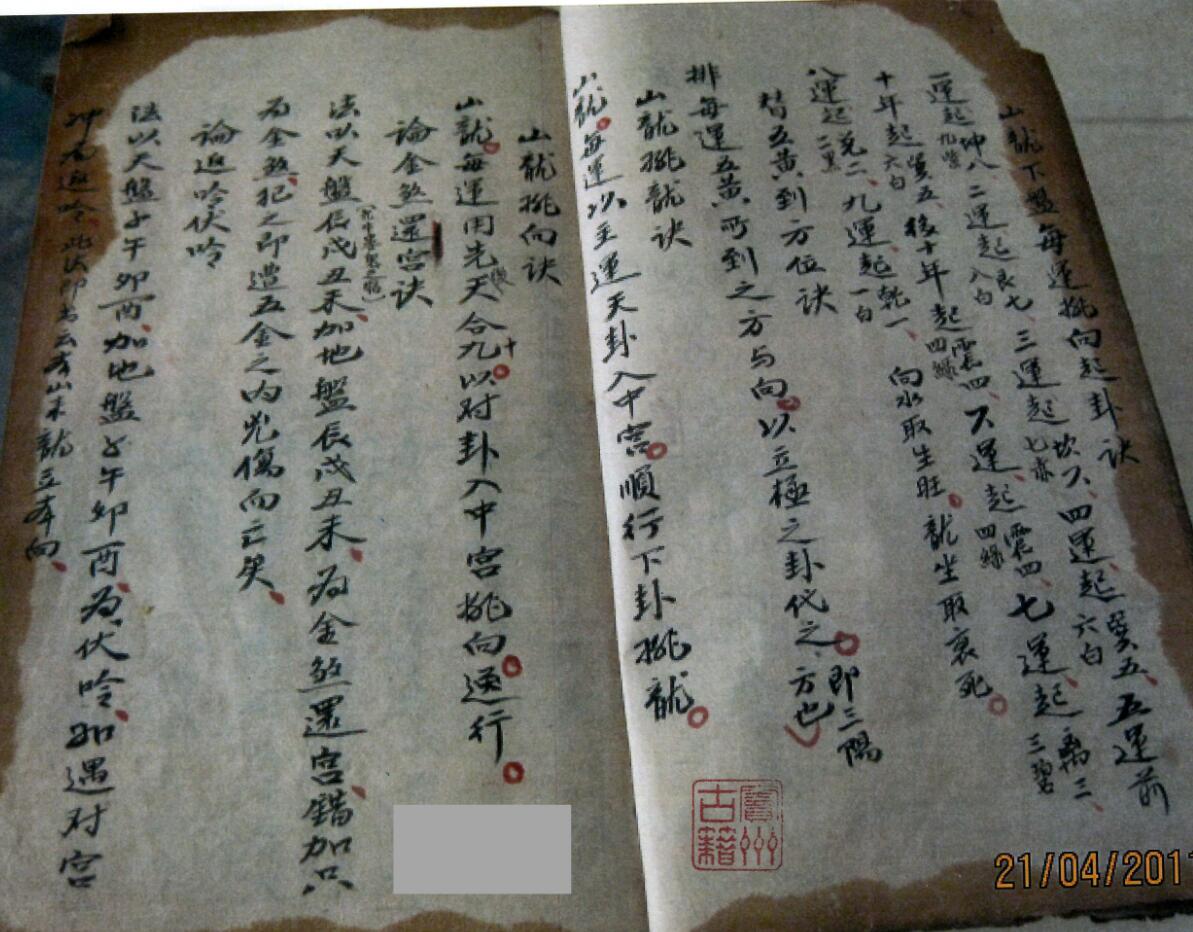 山龍下盤每運挑向起卦訣
一運起坤八九紫二運起艮七八白、三運起坎六七赤、四運起巽五六白、五運前
十年起巽五六白、後十年起震四四綠、六運起震四四綠、七運起离三三碧、
八運起兑二二黑、九運起乾一一白 向水取生旺。龍坐取衰死。
替五黃到方位訣
排每運五黃所到之方与向。以立極之卦代之。即三陽方也
山龍挑龍訣
山龍。每運以主運天卦入中宮。順行下卦挑龍。
山龍挑向訣
山龍。每運用先天後合九十。以对卦入中宮挑向。逆行。
論金煞還宮訣
法以天盤辰戌丑未、加地盤辰戌丑未、为金煞還宮、錯加只
为金煞、犯之即遭五金之内兇傷而亡矣、
論返吟伏吟
法以天盤子午卯酉、加地盤子午卯酉、为伏吟、如遇对宮
冲为返吟、此法即古云本山来龍立本向、
賓州古籍
21/04/2011